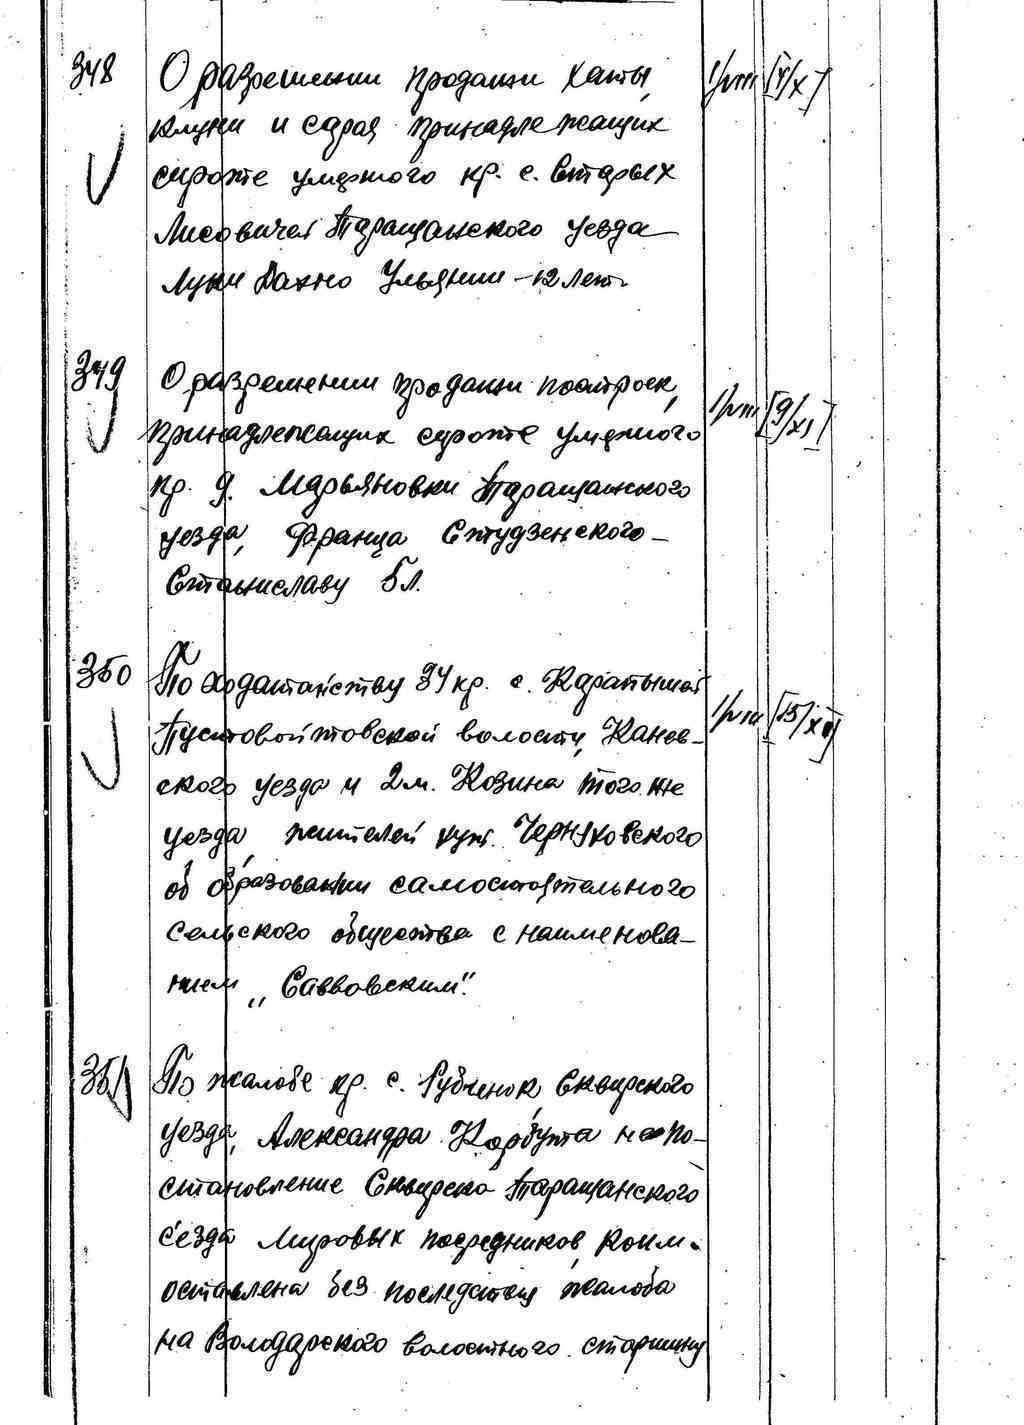 348 О разрешении продажи хаты,
клуни и сарая принадлежащих
сироте умершого кр. с. Старых
Лисовичей Таращанского уезда
Луки Вахно Ульянии - 12 лет.
349 О разрешении продажи построек,
принадлежащих сироте умершого
кр. д. Марьяновки Таращанского
уезда, Франца Студзенского -
Станиславу 5 л.
[9/XI]
350 По ходатайству 34 кр. с. Карапышей
Пустовойтовской волости, Канев-
ского уезда и 2 м. Козина того же
уезда, жителей хут. Черняховского
об образовании самостоятельного
сельского общества с наименова-
нием "Савовским".
[15/XII]
351 По жалобе кр. с. Рубченок, Сквирского
уезда, Александра Корбута на по-
становление Сквирско Таращанского
с'езда мировых посредников, коим
оставлена без последствия жалоба
на Володарского волостного старшину